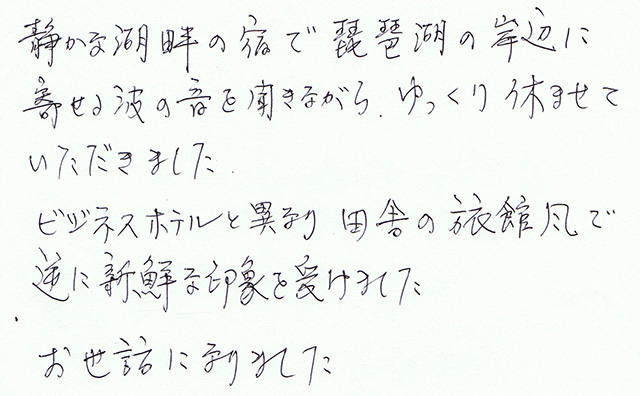 静かな湖畔の宿で琵琶湖の岸辺に
寄せる波の音を聞きながら、ゆっくり休ませて
いただきました
ビジネスホテルと異なり 田舎の旅館風で
逆に新鮮な印象を受けました
お世話になりました